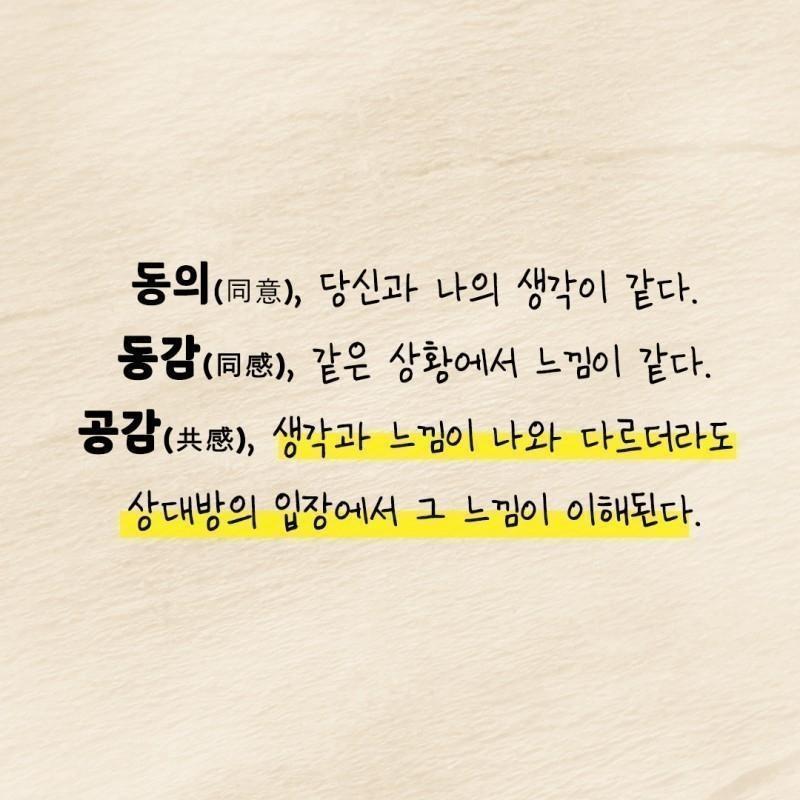 동의(同意), 당신과 나의 생각이 같다.
동감(同感), 같은 상황에서 느낌이 같다.
공감(共感), 생각과 느낌이 나와 다르더라도
상대방의 입장에서 그 느낌이 이해된다.